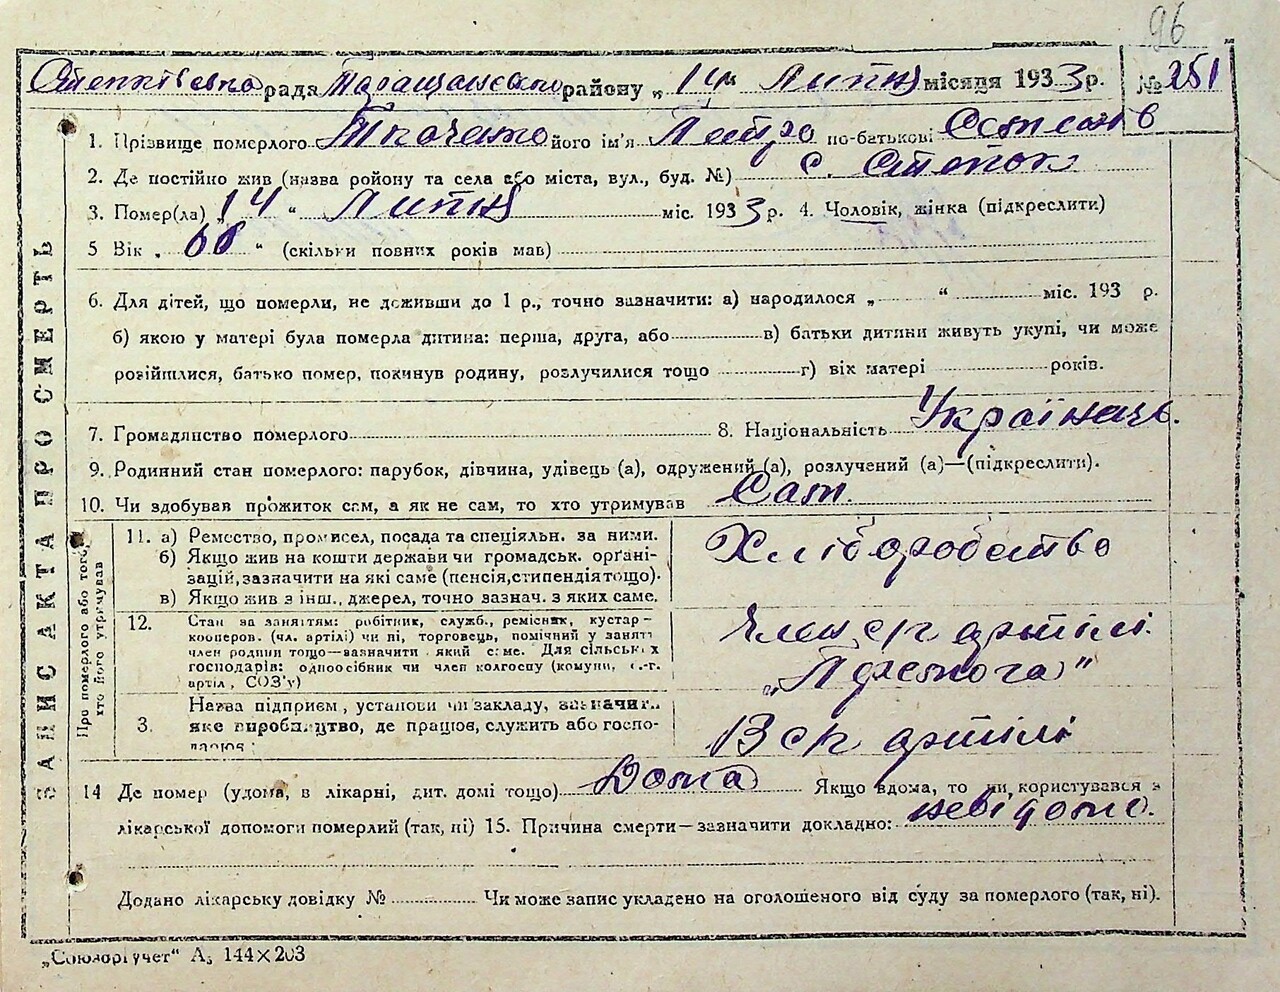 96
Степківська рада Таращанського району „14" Липня місяця 1933 р. № 251
1. Прізвище померлого Ткаченко його ім'я Петро по-батькові
2. Де постійно жив (назва ройону та села або міста, вул., буд. №) с. Степок
3. Помер(ла) „14" Липня міс. 1933 р. 4. Чоловік, жінка (підкреслити)
5 Вік „ " (скільки повних років мав)
6. Для дітей, що померли, не доживши до 1 р., точно зазначити: а) народилося „ " міс. 193 р.
б) якою у матері була померла дитина: перша, друга, або в) батьки дитини живуть укупі, чи може
розійшлися, батько помер, покинув родину, розлучилися тощо г) вік матері років.
7. Громадянство померлого 8. Національність Українець.
9. Родинний стан померлого: парубок, дівчина, удівець (а), одружений (а), розлучений (а)—(підкреслити).
10. Чи здобував прожиток сам, а як не сам, то хто утримував Сам.
ЗАПИС АКТА ПРО СМЕРТЬ
Про померлого або того, хто його утримував
11. а) Ремество, промисел, посада та спеціяльн. за ними.
б) Якщо жив на кошти держави чи громадськ. орґані-
зацій, зазначити на які саме (пенсія, стипендія тощо).
в) Якщо жив з інш., джерел, точно зазнач. з яких саме.
Хліборобство
12. Стан за заняттям: робітник, служб., ремісник, кустар-
кооперов. (чл. артілі) чи ні, торговець, помічний у занятті
член родини тощо—зазначити який саме. Для сільських
господарів: одноосібник чи член колгоспу (комуни, с.-г.
артіл, СОЗ'у)
Член с г артілі
3. Назва підприєм, установи чи закладу, зазначит..
яке виробництво, де працює, служить або госпо-
дарює:
В с г артілі
14 Де помер (удома, в лікарні, дит. домі тощо) Дома Якщо вдома, то чи користувався з
лікарської допомоги померлий (так, ні) 15. Причина смерти—зазначити докладно: невідомо.
Додано лікарську довідку № Чи може запис укладено на оголошеного від суду за померлого (так, ні).
„Союзоргучет" А₅ 144×203